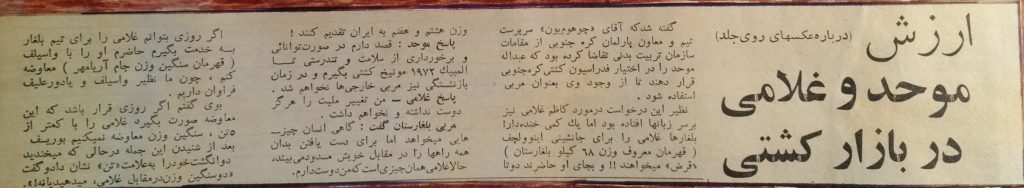 ارزش (درباره‌عکسهای روی‌جلد)
موحد و غلامی
در بازار کشتی
گفته شدکه آقای «چوهوم‌یون» سرپرست
تیم و معاون پارلمان کره جنوبی از مقامات
سازمان تربیت بدنی تقاضا کرده بود که عبداله
موحد را در اختیار فدراسیون کشتی‌کره‌جنوبی
قرار دهند تا از وجود وی بعنوان مربی
استفاده شود .
نظیر این درخواست درمورد کاظم غلامی نیز
برسر زبانها افتاده بود اما یك کمی خنده‌دار!
بلغارها غلامی را برای جانشینی اینوولچف
( قهرمان معروف وزن ۶۸ کیلو بلغارستان )
«قرض» میخواهند !! و بجای او حاضرند دوتا
وزن هشتم و هفتم به ایران تقدیم کنند !
پاسخ موحد : قصد دارم در صورت‌توانائی
و برخورداری از سلامت و تندرستی تا
المپیك ۱۹۷۲ مونیخ کشتی بگیرم و در زمان
بازنشستگی نیز مربی خارجی‌ها نخواهم شد .
پاسخ غلامی – من تغییر ملیت را هرگز
دوست نداشته و نخواهم داشت .
مربی بلغارستان گفت : گاهی انسان چیز
هایی میخواهد اما برای دست یافتن بدان
همه راهها را در مقابل خویش مسدودمی‌بیند،
حالاغلامی همان‌چیزی‌است‌که‌من‌دوست‌دارم.
اگر روزی بتوانم غلامی را برای تیم بلغار
به خدمت بگیرم حاضرم او را با واسیلف
( قهرمان سنگین وزن جام آریامهر ) معاوضه
کنم ، چون ما نظیر واسیلف و یادورعلیف
فراوان داریم .
بوی گفتم اگر روزی قرار باشد که این
معاوضه صورت بگیرد غلامی را با کمتر از
۵تن ، سنگین وزن معاوضه نمیکنیم بوریسف
بعد از شنیدن این جمله درحالی که میخندید
دوانگشت‌خودرا به‌علامت«تن» نشان دادوگفت
«دوسنگین وزن‌درمقابل غلامی، میدهیدیانه؟».